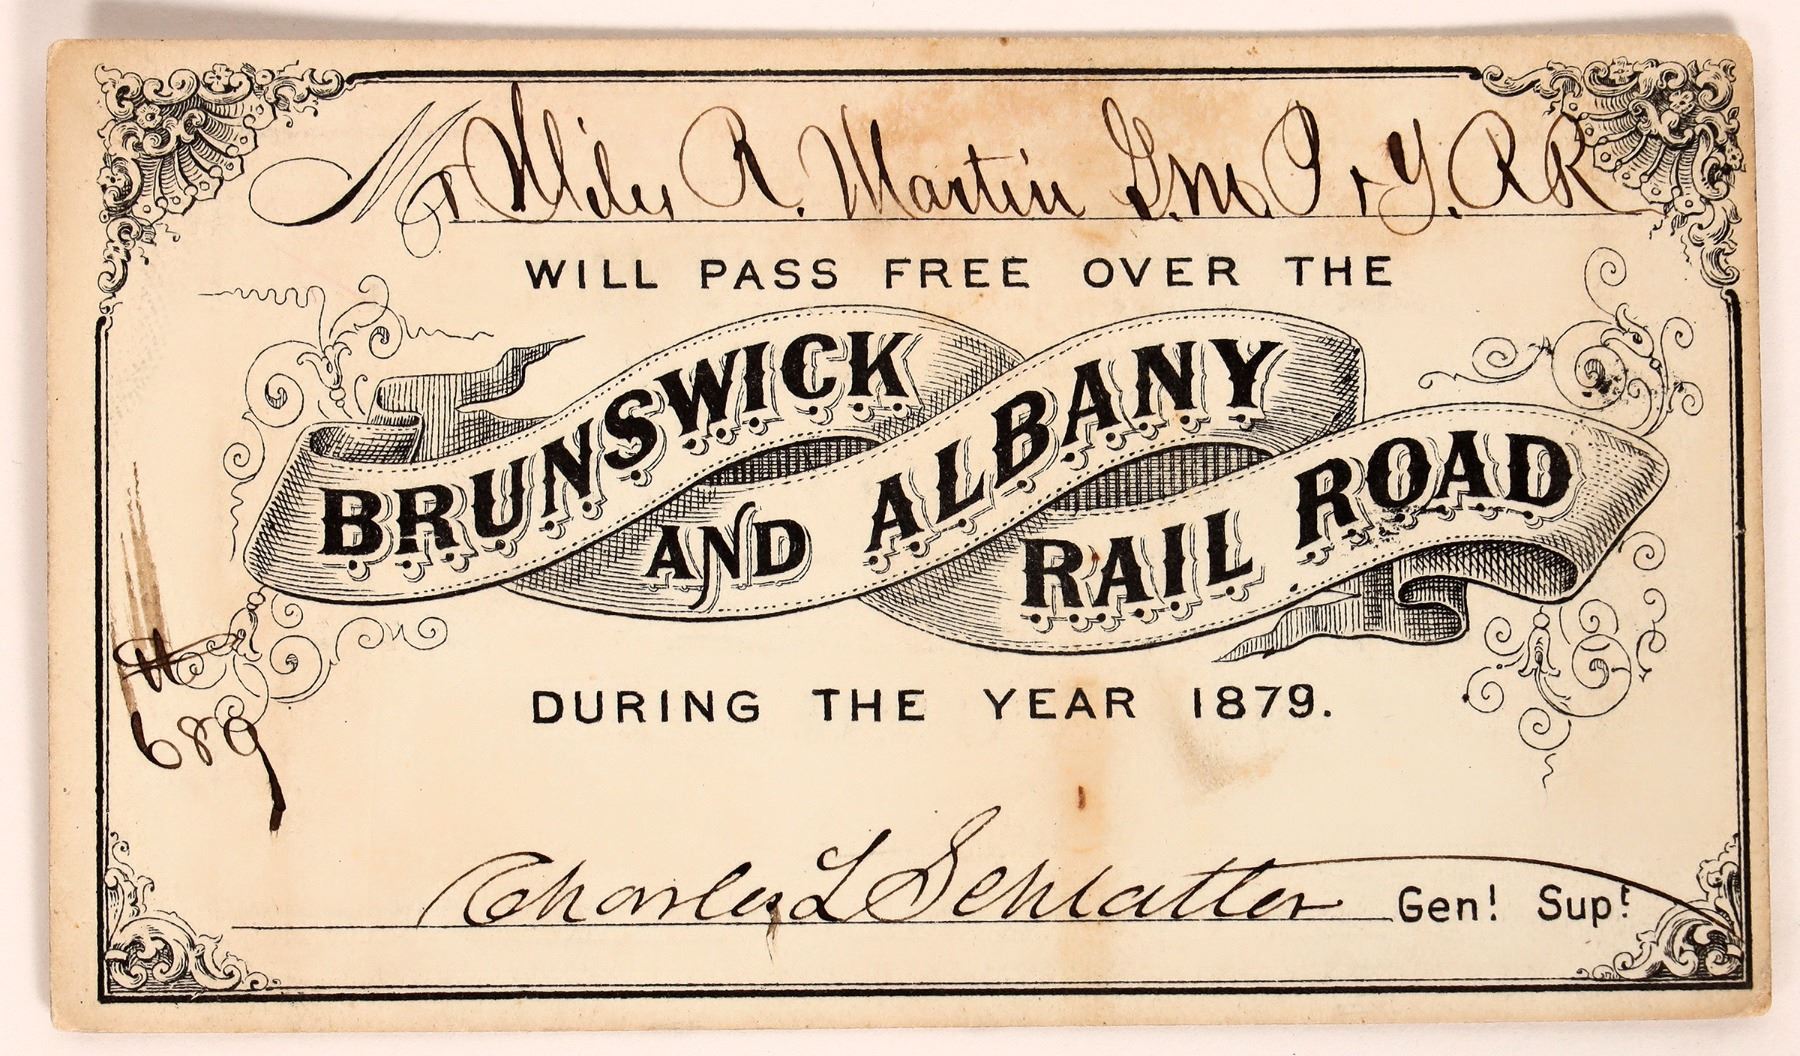 Mr Miles R. Martin G.M. P & Y. RR
WILL PASS FREE OVER THE
BRUNSWICK
AND ALBANY
RAIL ROAD
DURING THE YEAR 1879.
#
689
Charles L Schlatter Genl Supt